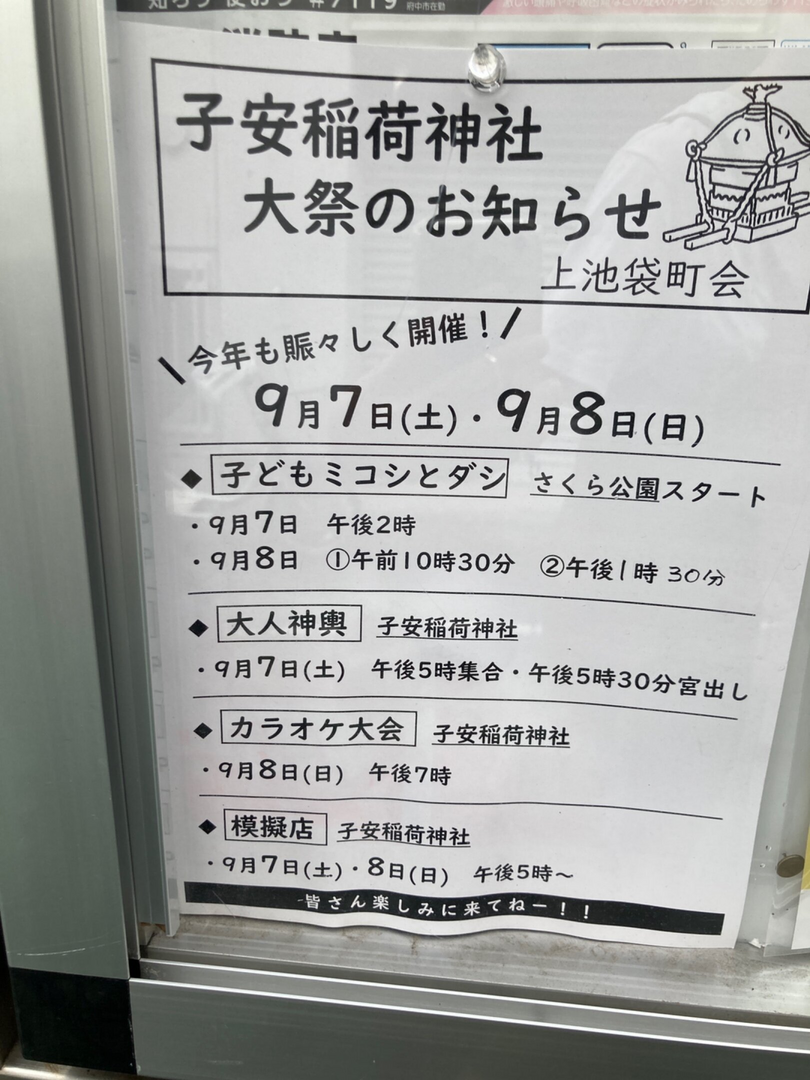 府中市在勤
子安稲荷神社
大祭のお知らせ
上池袋町会
\今年も賑々しく開催！/
9月7日(土)・9月8日(日)
◆ 子どもミコシとダシ さくら公園スタート
・9月7日 午後2時
・9月8日 ①午前10時30分 ②午後1時30分
◆ 大人神輿 子安稲荷神社
・9月7日(土) 午後5時集合・午後5時30分宮出し
◆ カラオケ大会 子安稲荷神社
・9月8日(日) 午後7時
◆ 模擬店 子安稲荷神社
・9月7日(土)・8日(日) 午後5時～
皆さん楽しみに来てねー！！